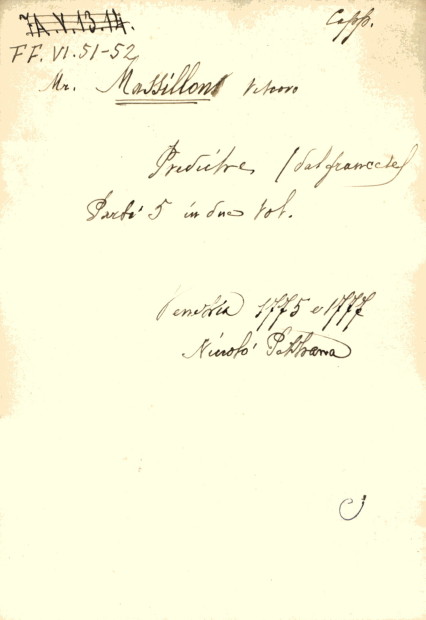 7A.V.13.14.
Capp.
FF.VI.51-52
Mr. Massillon Vescovo
Prediche (dal francese)
Parti 5 in due vol.
Venezia 1775 e 1777
Nicolò Pezzana